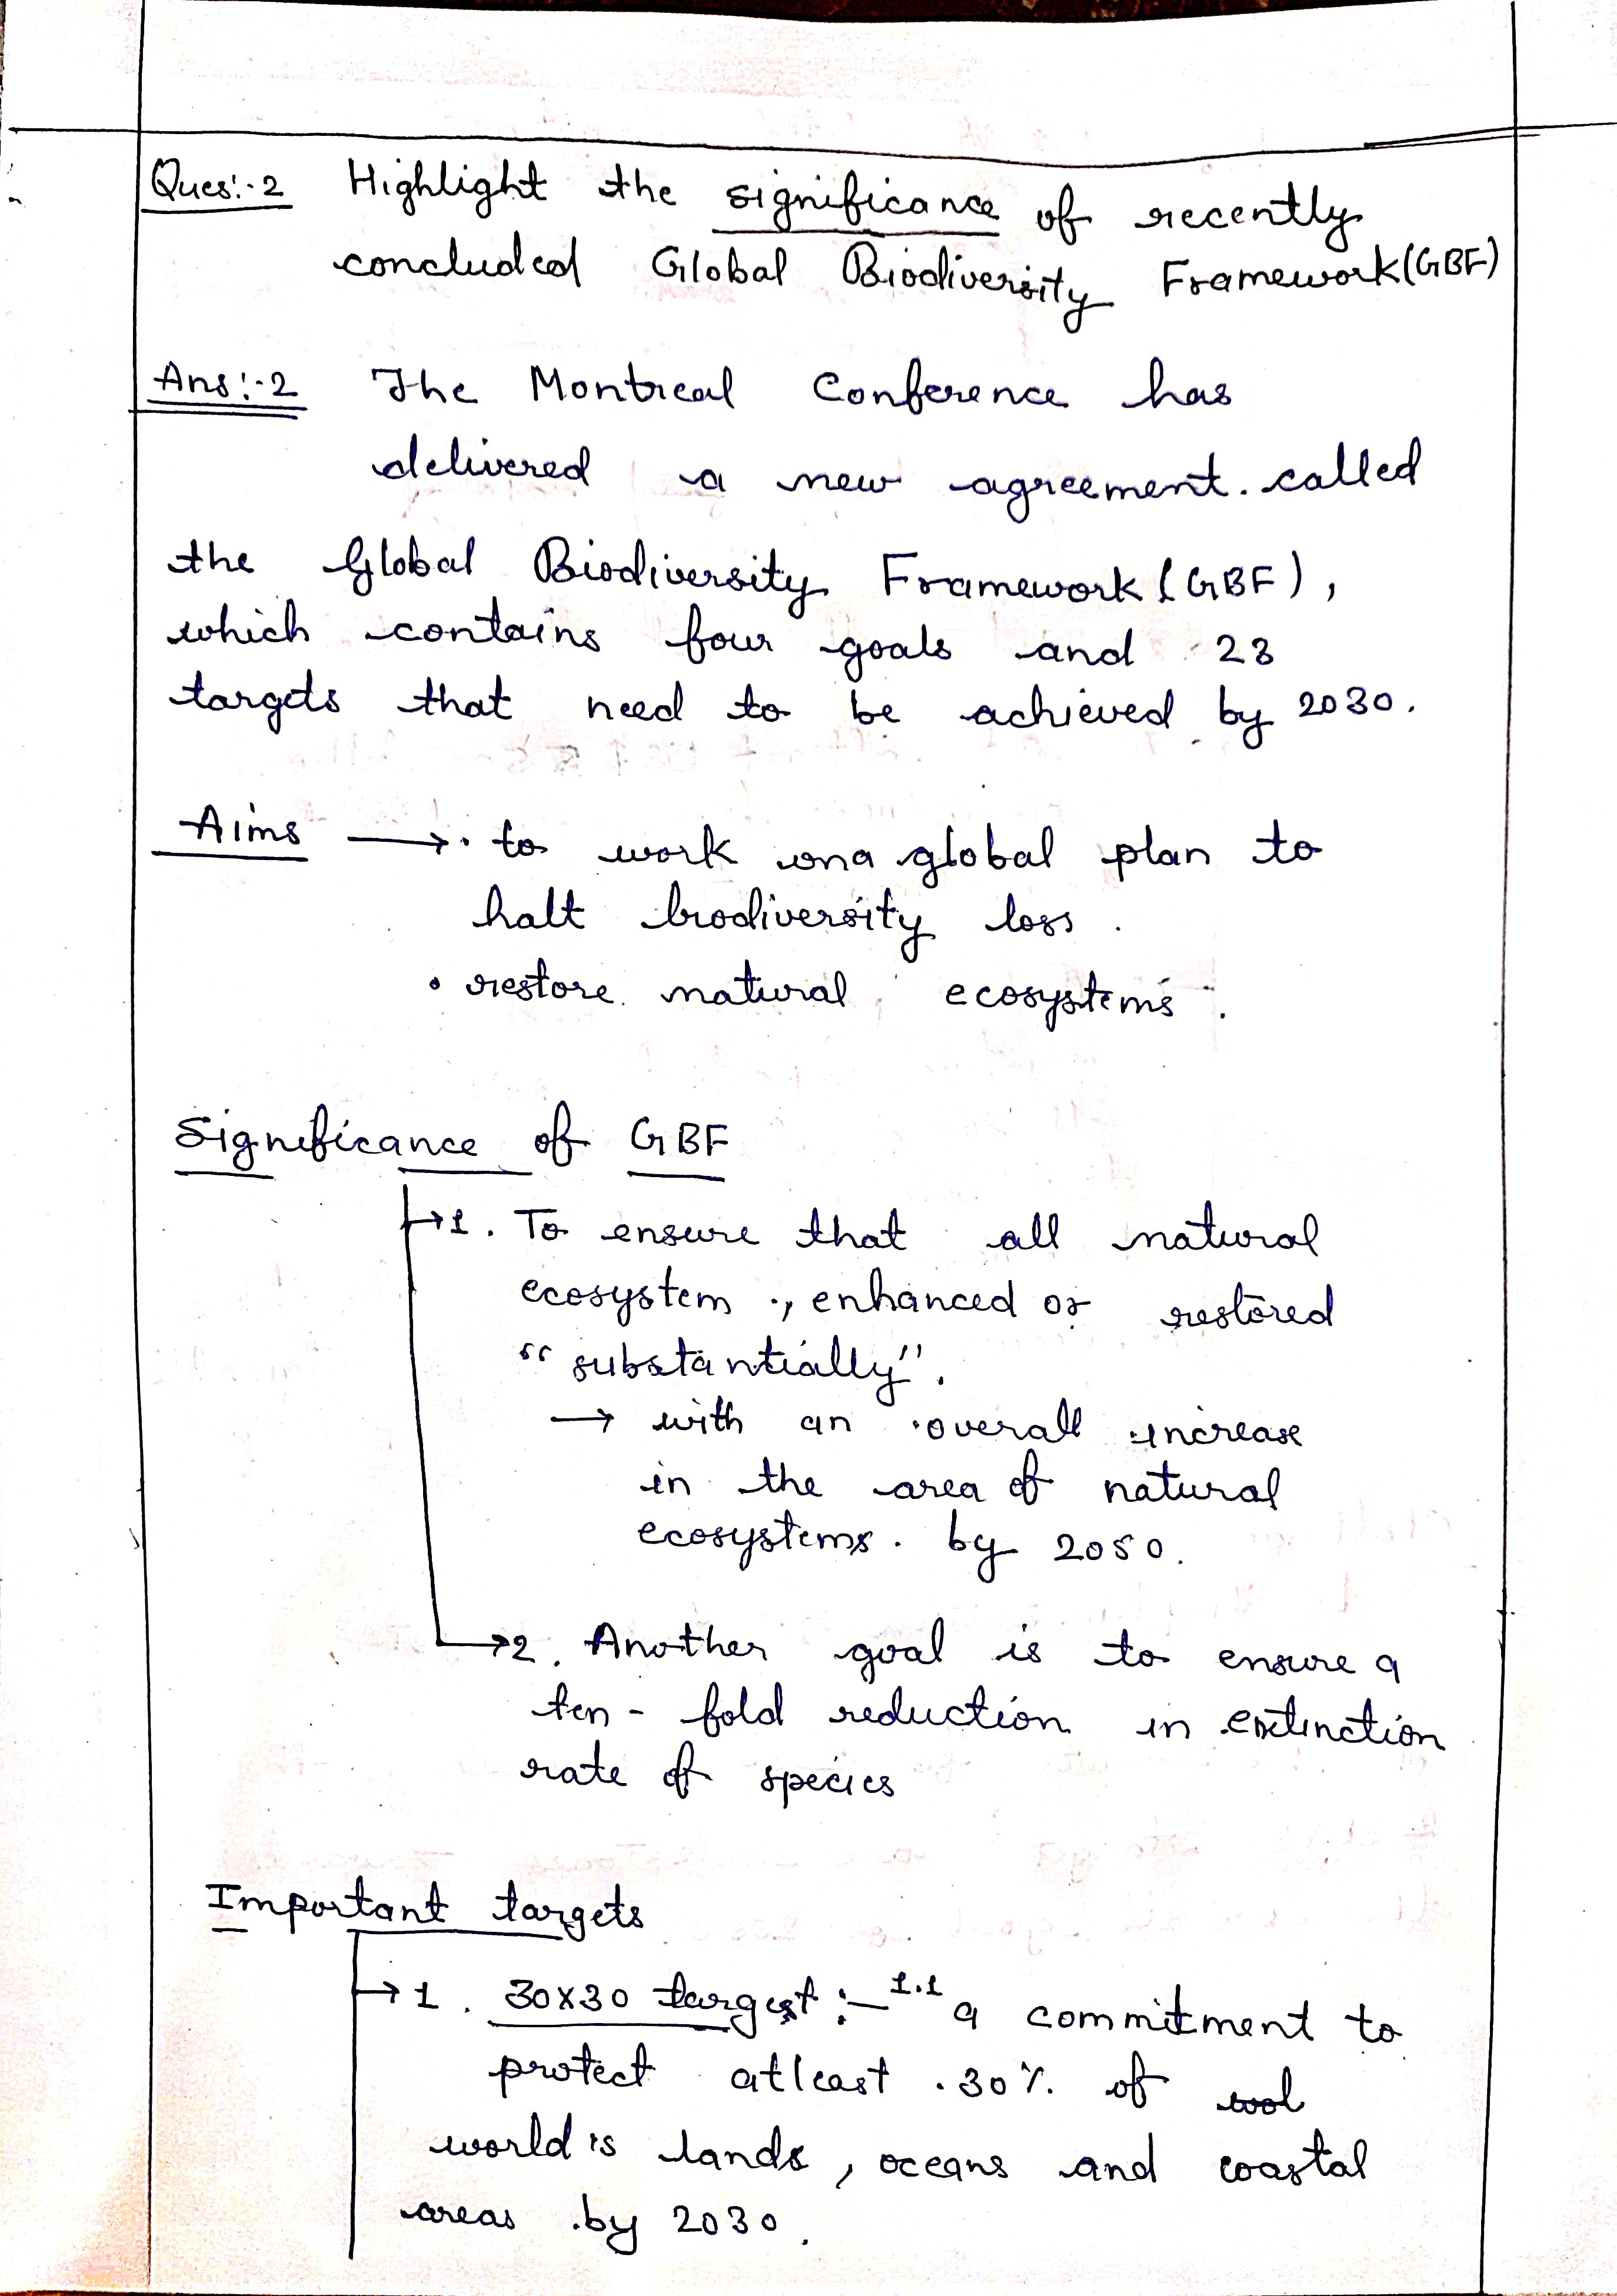 Ques:-2 Highlight the significance of recently
concluded Global Biodiversity Framework(GBF)
Ans:-2 The Montreal Conference has
delivered a new agreement. called
the Global Biodiversity Framework (GBF),
which contains four goals and 23
targets that need to be achieved by 2030.
Aims → • to work on a global plan to
halt biodiversity loss.
• restore natural ecosystems.
Significance of GBF
→1. To ensure that all natural
ecosystem ., enhanced or restored
"substantially".
→ with an overall increase
in the area of natural
ecosystems. by 2050.
→2. Another goal is to ensure a
ten-fold reduction in extinction
rate of species
Important targets
→1. 30x30 target :- 1.1 a commitment to
protect atleast 30% of
world's lands, oceans and coastal
areas by 2030.